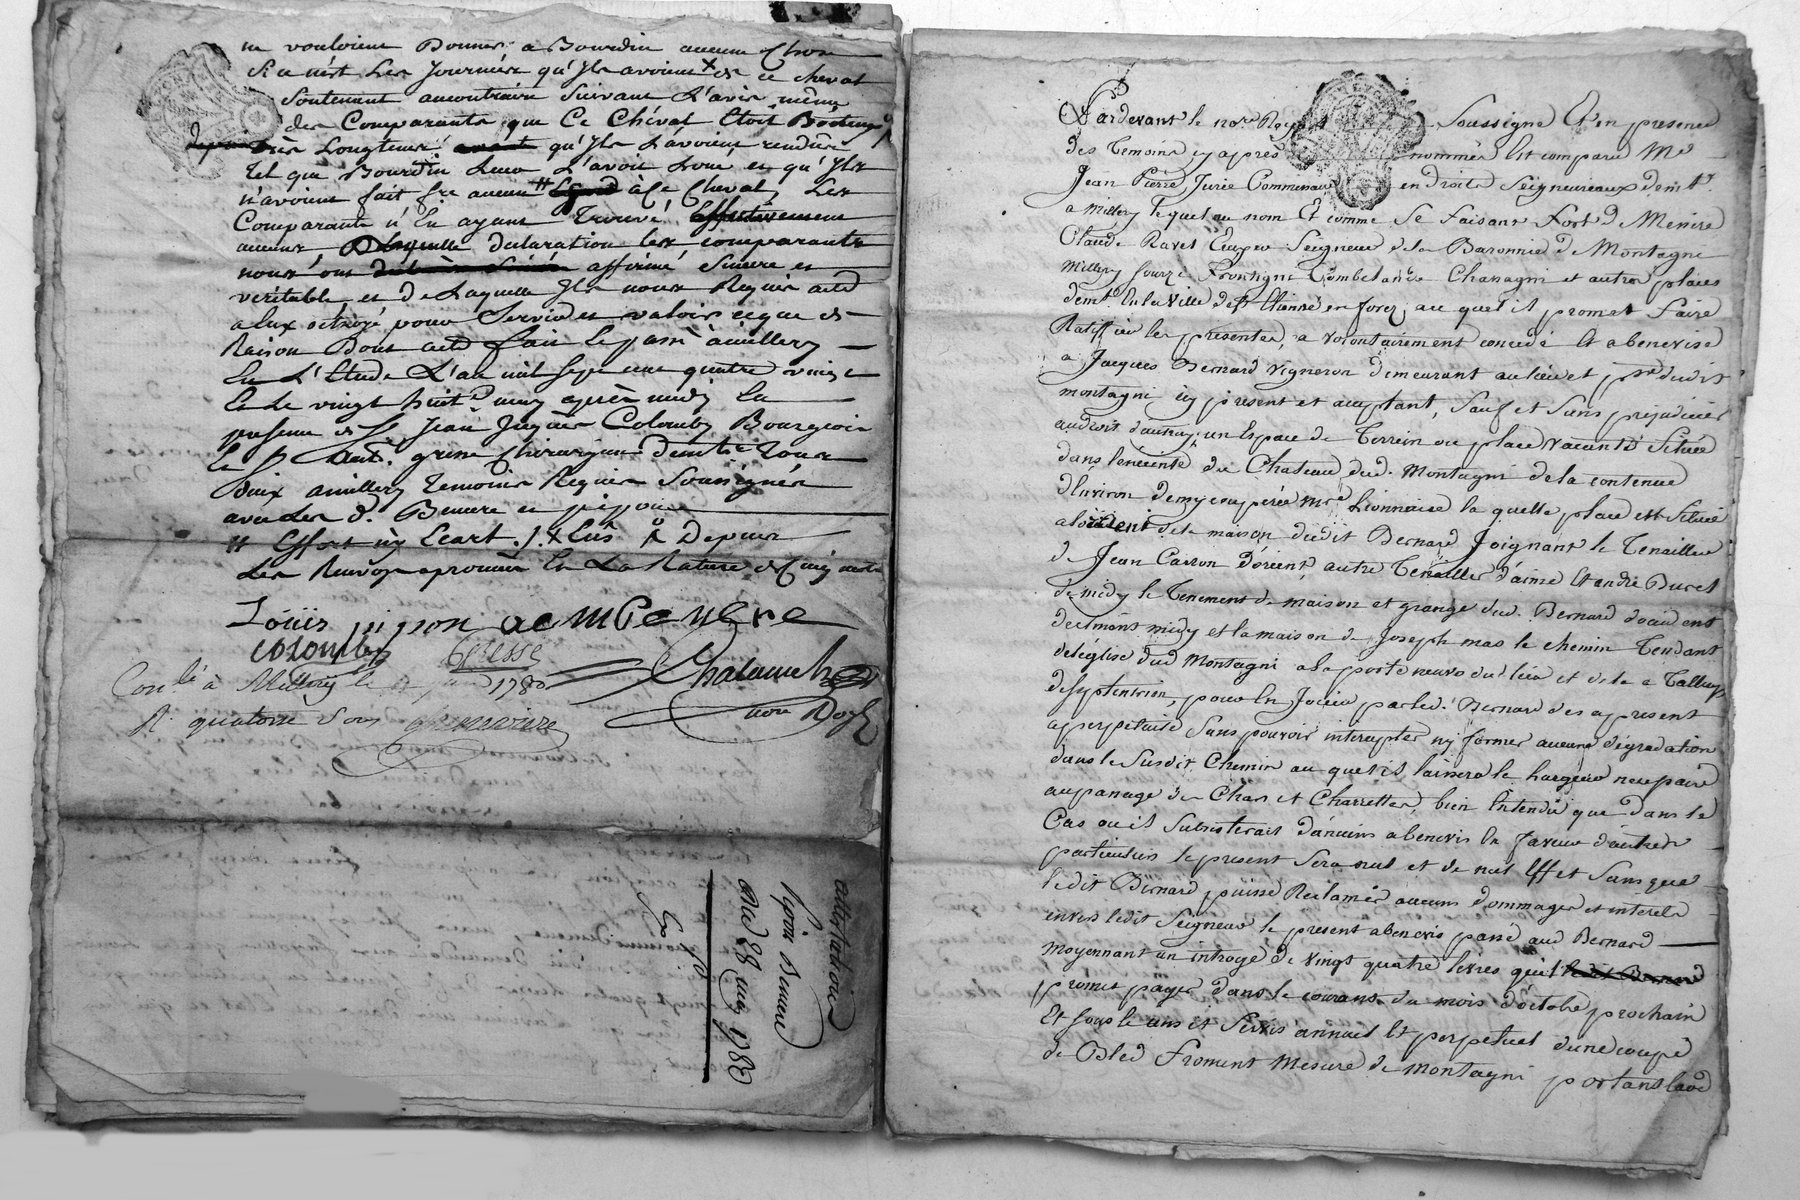 ne vouloient Donner a Bourdin aucune Chose
Si ce n'est Les Journées qu'Ils avoient x de ce cheval
Soutenant aucontraire Suivant L'avis même
des Comparants que Ce Cheval Etoit Boiteux
Longtems qu'Ils L'avoient rendüe
Tel que Bourdin Leur L'avoit Loué et qu'Ils
n'avoient fait fre aucun # à Ce Cheval, Les
Comparants n'En ayant Trouvé Effectivement
aucuns, De laquelle declaration les comparants
nous ont affirmé Sincere et
veritable, et De Laquelle Ils nous Requis acte
a Eux octroyé pour Servir et valoir ce que de
Raison Dont acte fait Et passé à millery
En L'Etude L'an mil Sept cent quatre vingt
Et Le vingt huit may après midy En
presence de Sr Jean Jaques Colomby Bourgeois
Et Sr Ant. Chirurgien Demt Tous
Deux amillery Temoins Requis Soussignés
avec Les d. Bemere et pipon
# Effort ny Ecart ./. x Eüs Depuis
Les Renvoys aprouvés En La Rature de Cinq mots
Loüis pipon
colomby
Con.lé à Millery le 1780
R. quatorze Sous
attestation
pipon Bemere
Du 28 may 1780
Pardevant le nore Royal Soussigné Et en presence
des Temoins cy après nommés Est comparu Me
Jean Pierre Jurie Commissaire en Droits Seigneuriaux demt.
a Millery lequel au nom Et comme Se Faisant Fort de Messire
Claude Ravel Ecuyer Seigneur de la Baronnie de Montagni
Millery Sourzi Frontigni Combelande Chassagni et autres places
demt En la Ville de St Etienne en forez, au quel il promet Faire
Ratiffier les presentes, a volontairement concedé Et abenevisé
a Jacques Bernard vigneron Demeurant au lieu et psse dudit
montagni icy present et acceptant, Sauf et Sans prejudicier
audroit d'autruy, un Espace de Terrein ou place vacante Située
dans l'enceinte du Chateau dud. Montagni de la contenue
d'Environ demy couperée mre Lionnoise la quelle place est Située
de la maison dudit Bernard Joignant le Tenaillier
de Jean Carron d'orient, autre Tenaillier d'aimé Et andré Buret
de midy le Tenement de maison et grange dud. Bernard d'occident
declinant midy et la maison de Joseph mas le chemin Tendant
del'église dud Montagni a la porte neuve du lieu et de la a Talluys
de Septentrion, pour En Jouir par led. Bernard des apresent
aperpetuité Sans pouvoir interrupter ny former aucune dégradation
dans le Susdit Chemin au quel il laissera le largeur necessaire
au passage des Chars et Charrettes, bien Entendu que dans le
Cas ou il Subsisterait d'anciens abenevis En faveur d'autres
particuliers le present Sera nul et de nul Effet Sans que
ledit Bernard puisse Reclamer aucuns dommages et interets
envers ledit Seigneur le present abenevis passé aud Bernard
Moyennant un introge de vingt quatre livres qu'il
promet payer dans le courant du mois d'octobre prochain
Et Sous le cens et Servis annuel Et perpetuel d'une coupe
de Bled Froment Mesure de Montagni portant laod